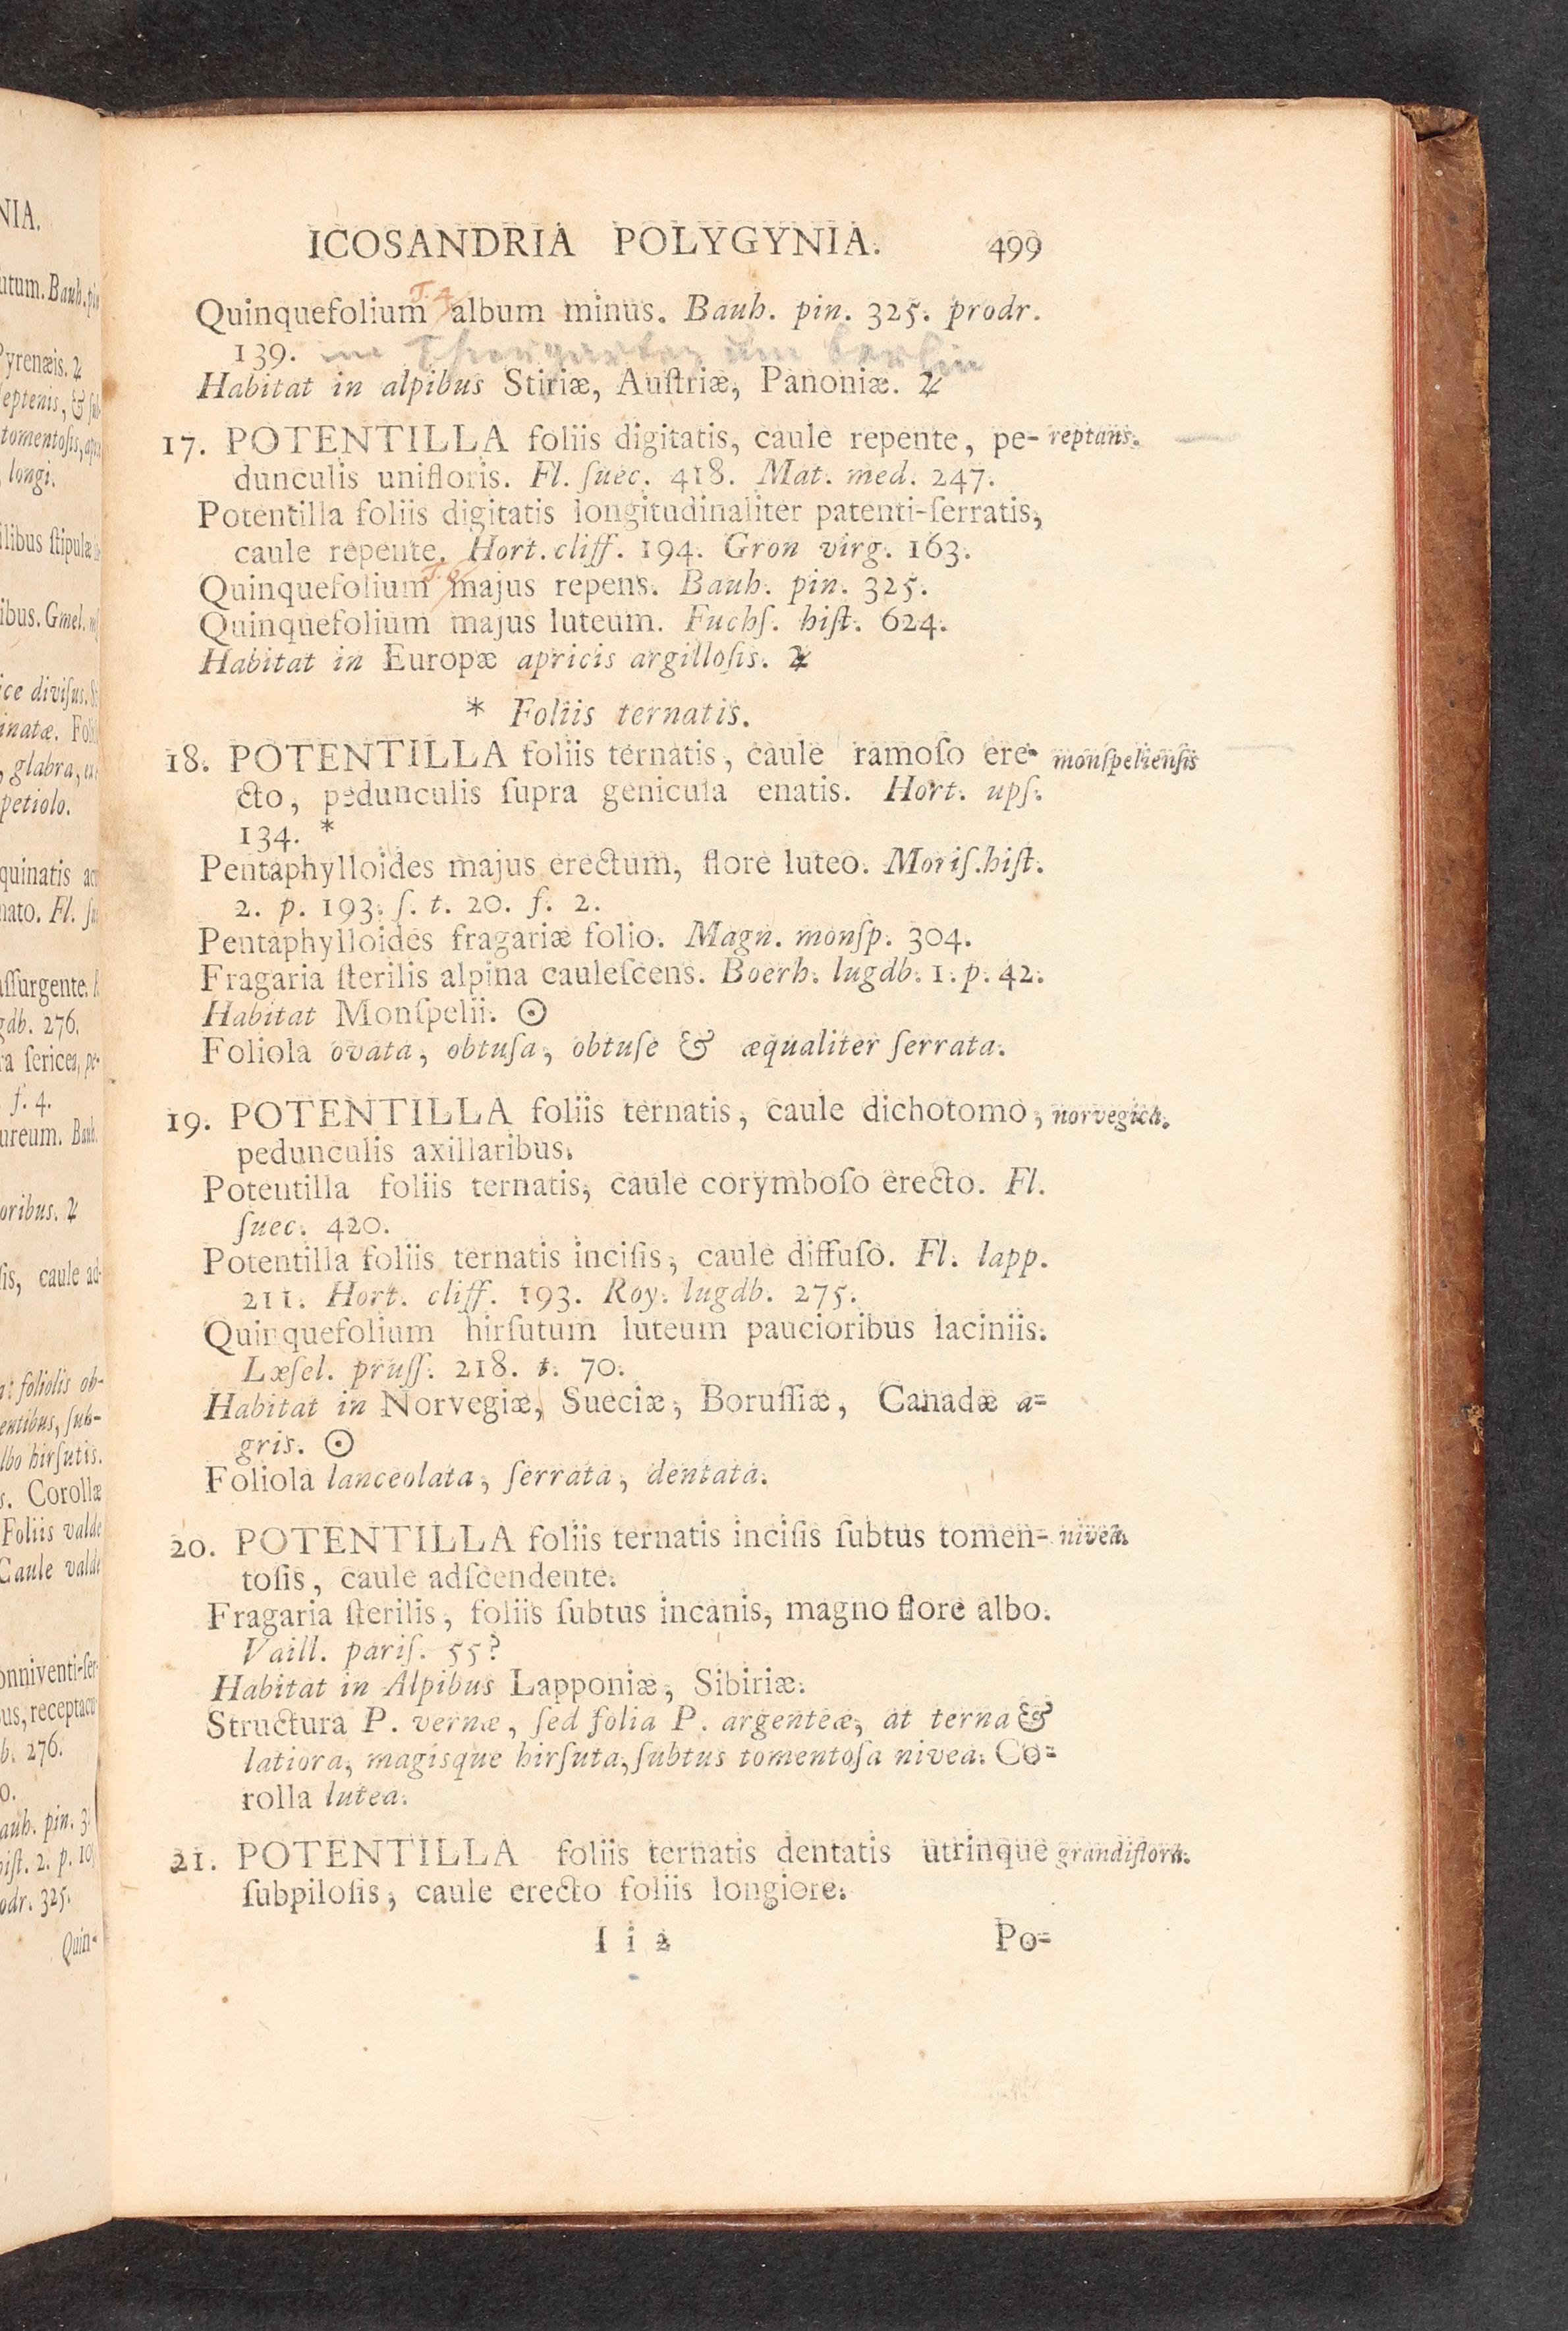 NIA.
utum. Bauh. pin
Pyrenæis. ♃
septenis, & sub
tomentosis, apice
longi.
ilibus stipulæ
ibus. Gmel.
ice divisus.
inatæ. Foli
, glabra,
petiolo.
quinatis
nato. Fl.
assurgente.
gdb. 276.
ra sericea, pe-
f. 4.
ureum. Bauh.
oribus. ♃
sis, caule ad-
foliolis ob-
entibus, sub-
lbo hirſutis.
s. Corollæ
Foliis valde
Caule valde
onniventi-ſer-
us, receptacu
b. 276.
o.
auh. pin. 3
hiſt. 2. p. 10
odr. 325.
Quin-
ICOSANDRIA POLYGYNIA. 499
Quinquefolium T.4 album minus. Bauh. pin. 325. prodr.
139. im Thiergarten um berlin
Habitat in alpibus Stiriæ, Auſtriæ, Panoniæ. ♃
17. POTENTILLA foliis digitatis, caule repente, pe- reptans.
dunculis unifloris. Fl. ſuec. 418. Mat. med. 247.
Potentilla foliis digitatis longitudinaliter patenti-ſerratis,
caule repente. Hort. cliff. 194. Gron virg. 163.
Quinquefolium majus repens. Bauh. pin. 325.
Quinquefolium majus luteum. Fuchſ. hiſt. 624.
Habitat in Europæ apricis argilloſis. ♃
* Foliis ternatis.
18. POTENTILLA foliis ternatis, caule ramoſo ere- monſpelienſis
cto, pedunculis ſupra genicula enatis. Hort. upſ.
134. *
Pentaphylloides majus erectum, flore luteo. Moriſ. hiſt.
2. p. 193. ſ. t. 20. f. 2.
Pentaphylloides fragariæ folio. Magn. monſp. 304.
Fragaria ſterilis alpina cauleſcens. Boerh. lugdb. 1. p. 42.
Habitat Monſpelii. ☉
Foliola ovata, obtuſa, obtuſe & æqualiter ſerrata.
19. POTENTILLA foliis ternatis, caule dichotomo, norvegica.
pedunculis axillaribus.
Potentilla foliis ternatis, caule corymboſo erecto. Fl.
ſuec. 420.
Potentilla foliis ternatis inciſis, caule diffuſo. Fl. lapp.
211. Hort. cliff. 193. Roy. lugdb. 275.
Quinquefolium hirſutum luteum paucioribus laciniis.
Læſel. pruſſ. 218. t. 70.
Habitat in Norvegiæ, Sueciæ, Boruſſiæ, Canadæ a-
gris. ☉
Foliola lanceolata, ſerrata, dentata.
20. POTENTILLA foliis ternatis inciſis ſubtus tomen- nivea.
toſis, caule adſcendente.
Fragaria ſterilis, foliis ſubtus incanis, magno flore albo.
Vaill. pariſ. 55?
Habitat in Alpibus Lapponiæ, Sibiriæ.
Structura P. vernæ, ſed folia P. argenteæ, at terna &
latiora, magisque hirſuta, ſubtus tomentoſa nivea. Co-
rolla lutea.
21. POTENTILLA foliis ternatis dentatis utrinque grandiflora.
ſubpiloſis, caule erecto foliis longiore.
I i 2 Po-